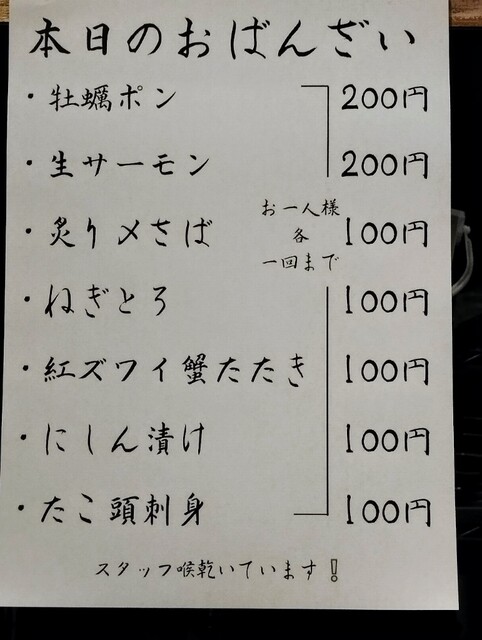 本日のおばんざい
・牡蠣ポン 200円
・生サーモン 200円
・炙り〆さば 100円
お一人様
各
一回まで
・ねぎとろ 100円
・紅ズワイ蟹たたき 100円
・にしん漬け 100円
・たこ頭刺身 100円
スタッフ喉乾いています!